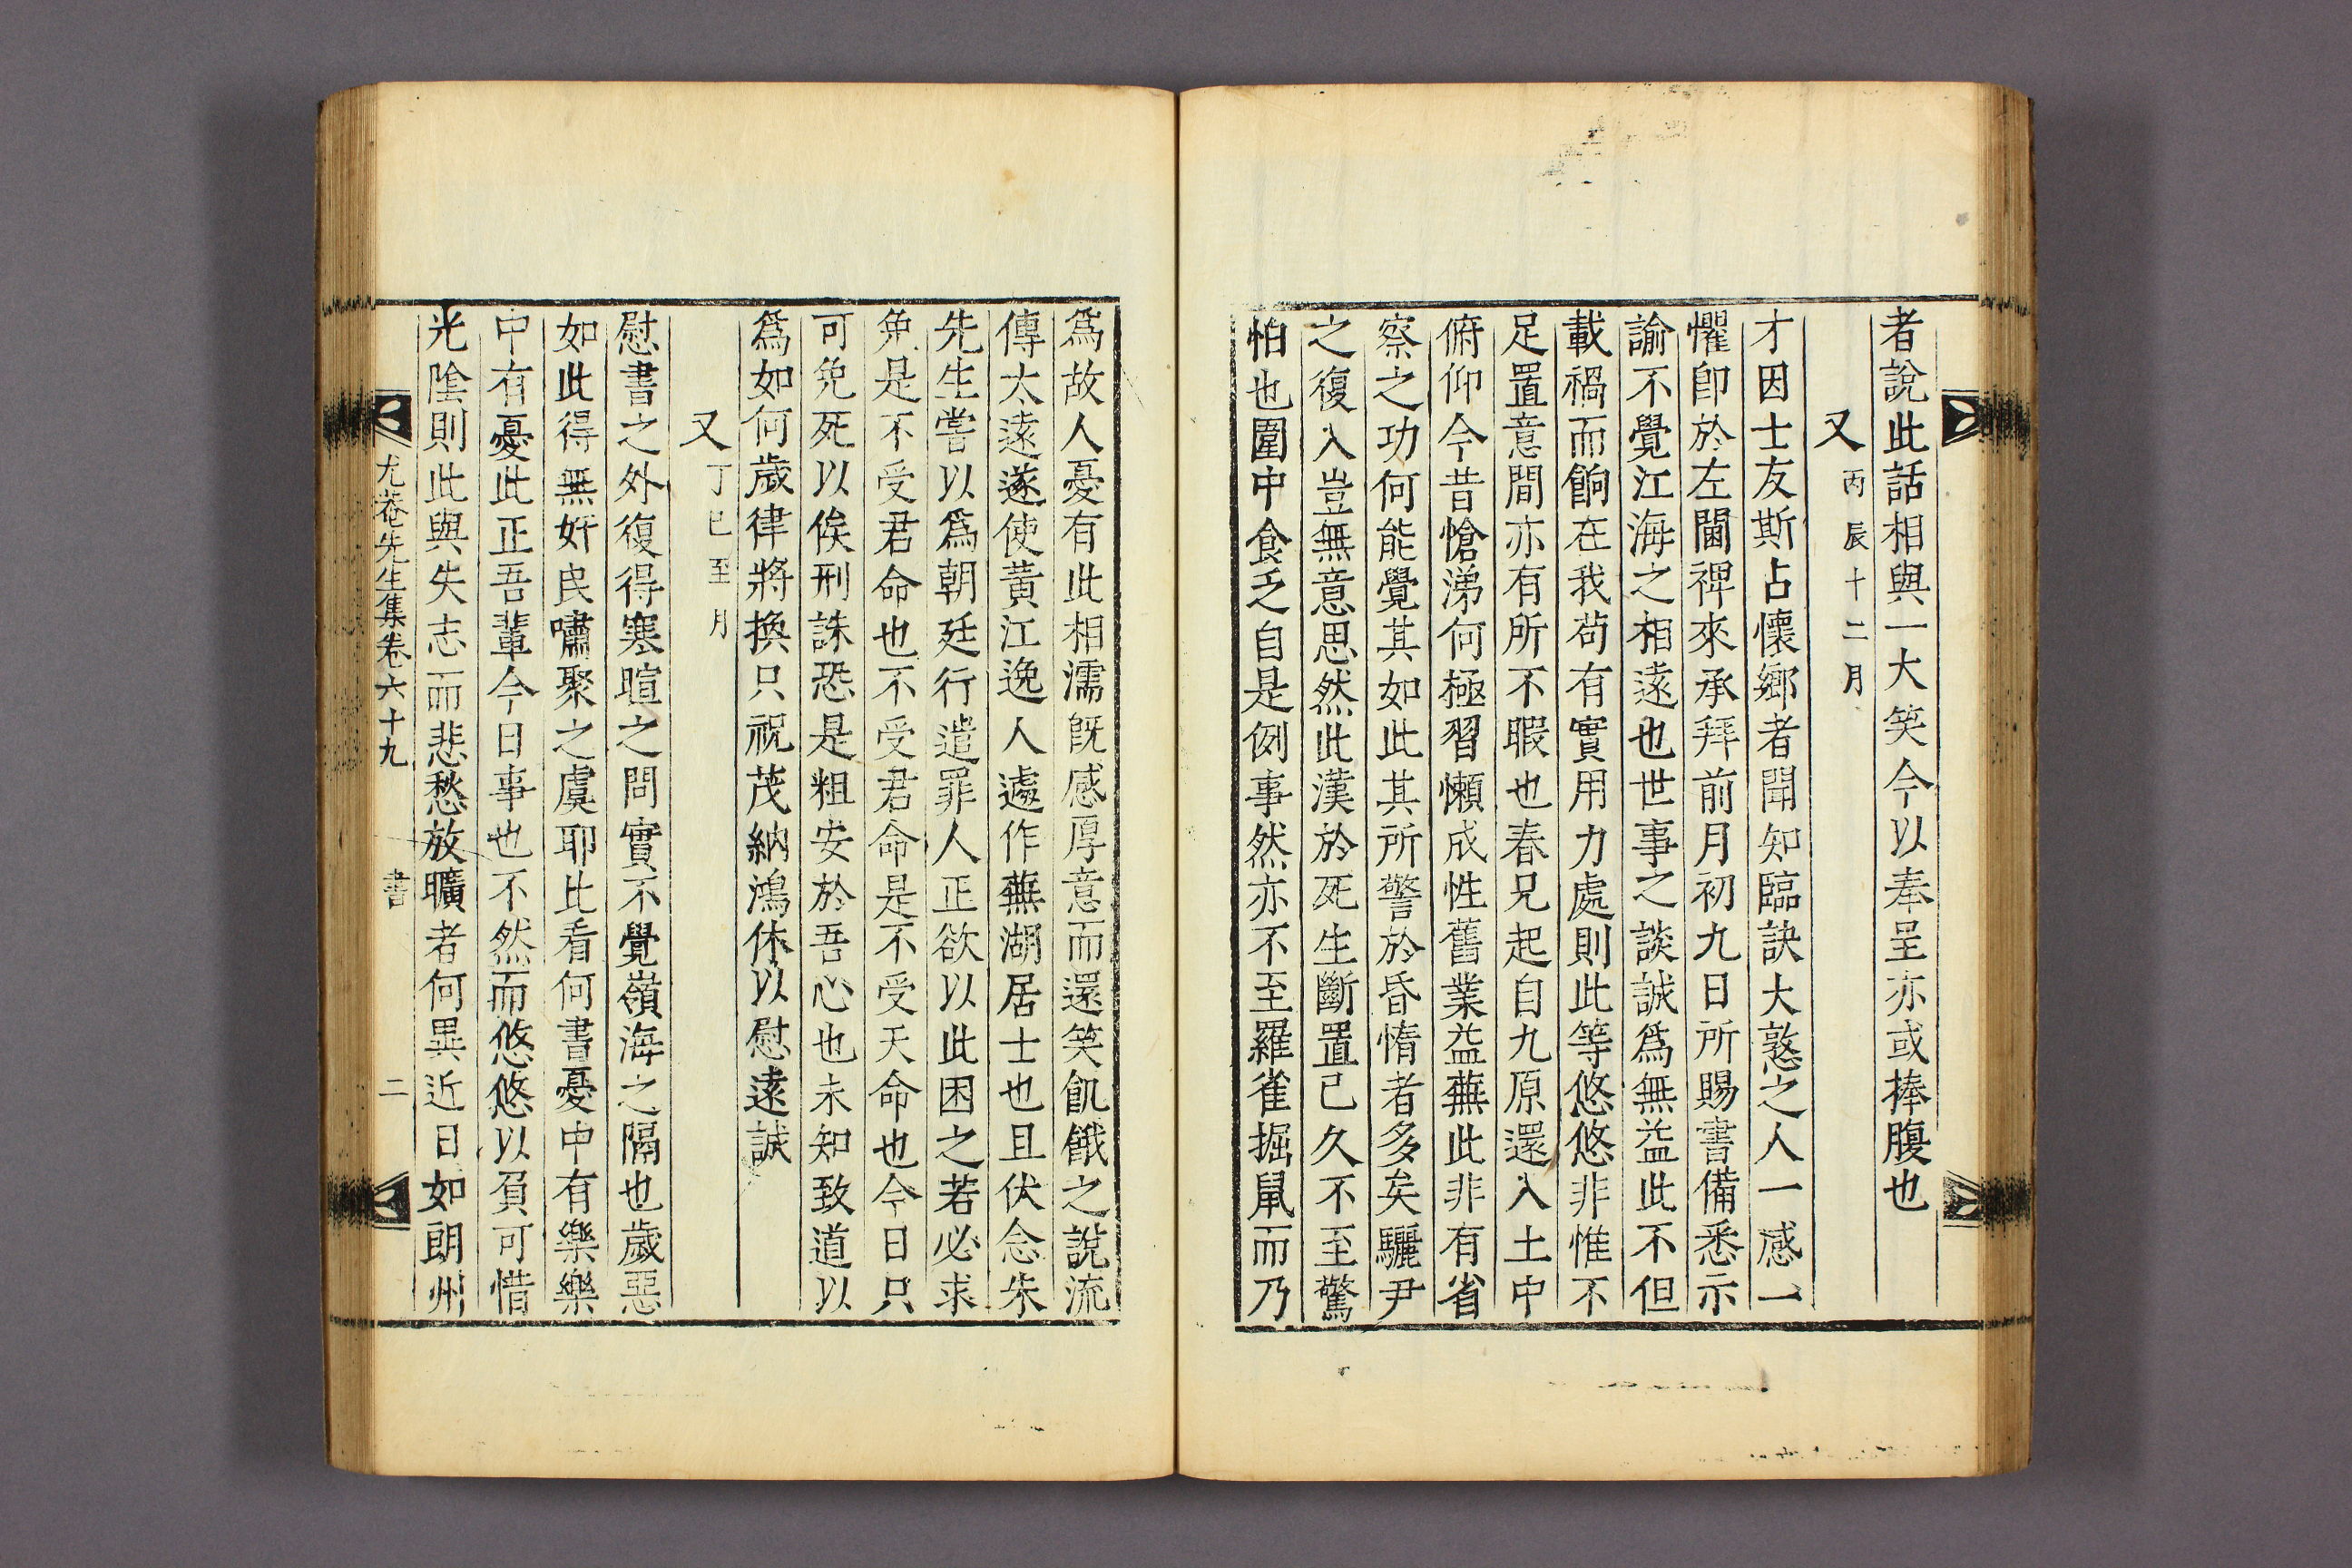 者說此話相與一大笑今以奉呈亦或捧腹也
又丙辰十二月
才因士友斯占懷鄉者聞知臨訣大憝之人一感一
懼卽於左閫裨來承拜前月初九日所賜書備悉示
諭不覺江海之相遠也世事之談誠爲無益此不但
載禍而餉在我苟有實用力處則此等悠悠非惟不
足置意間亦有所不暇也春兄起自九原還入土中
俯仰今昔愴涕何極習懶成性舊業益蕪此非有省
察之功何能覺其如此其所警於昏惰者多矣驪尹
之復入豈無意思然此漢於死生斷置已久不至驚
怕也圍中食乏自是例事然亦不至羅雀掘鼠而乃
爲故人憂有此相濡旣感厚意而還笑飢餓之說流
傳太遠遂使黃江逸人遽作蕪湖居士也且伏念朱
先生嘗以爲朝廷行遣罪人正欲以此困之若必求
免是不受君命也不受君命是不受天命也今日只
可免死以俟刑誅恐是粗安於吾心也未知致道以
爲如何歲律將換只祝茂納鴻休以慰遠誠
又丁巳至月
慰書之外復得寒暄之問實不覺嶺海之隔也歲惡
如此得無奸民嘯聚之虞耶比看何書憂中有樂樂
中有憂此正吾輩今日事也不然而悠悠以負可惜
光陰則此與失志而悲愁放曠者何異近日如朗州
尤菴先生集卷六十九 書 二